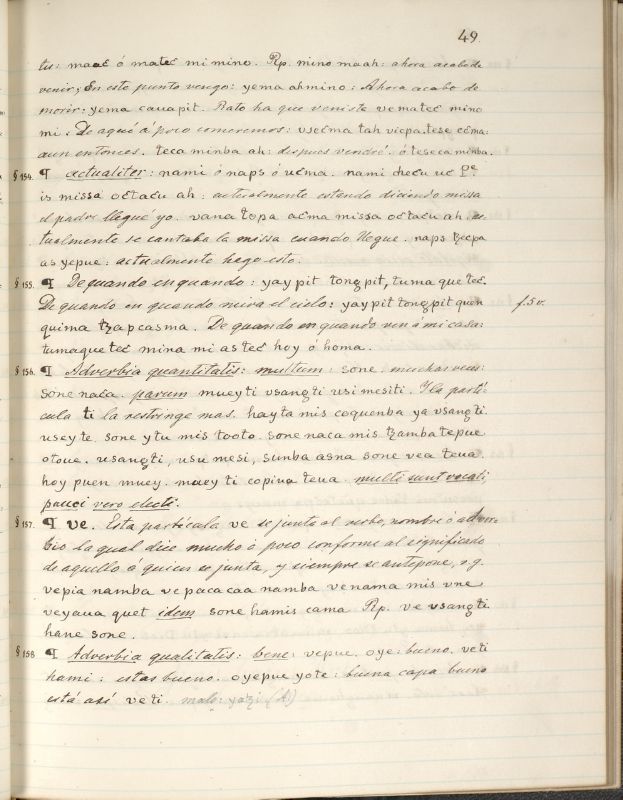 49.
tu: maac ó matec mi mino. Rp. mino maah: ahora acabo de
venir; En este punto vengo: yema ahmino: Ahora acabo de
morir: yema cauapit. Rato ha que veniste vematec mino
mi: De aqué á poco comeremos: vsecma tah vicpa. tese cema:
aun entonces. teca minba ah: despues vendré. ó teseca minba.
§ 154. ¶ actualiter: nami ó naps ó ucma. nami checu uc Pe
is missa octacu ah: actualmente estando diciendo missa
el padre llegué yo. vana topa acma missa octacu ah. ac-
tualmente se cantaba la missa cuando llegue. naps tzecpa
as yepue: actualmente hago esto.
§ 155. ¶ De quando en quando: yaypit tongpit, tuma que tec.
De quando en quando mira el cielo: yaypit tongpit quen f. 5 v.
quima tzapcasma. De quando en quando ven á mi casa:
tumaquetec mina mi as tec hoy ó homa.
§ 156. ¶ Adverbia quantitatis: multum: sone. muchas veces:
sone naca. parum mueyti vsangti usi mesiti. Y la partí-
cula ti la restringe mas. hayta mis coquenba ya vsangti.
useyte. sone ytu mis tooto. sone naca mis tzamba tepue
otoue. usangti, usu mesi, sunba asna sone vea teua
hoy puen muey. muey ti copina teua. multi sunt vocati
pauci vero electi.
§ 157. ¶ ve. Esta partécula ve se junta al verbo, nombre ó adver-
bio la qual dice mucho ó poco conforme al significado
de aquello á quien se junta, y siempre se antepone, v.g.
vepia namba vepaca caa namba venama mis vne
veyaua quet idem sone hamis cama Rp. ve vsangti
hane sone.
§ 158. ¶ Adverbia qualitatis: bene: vepue. oye: bueno. veti
hami: estas bueno. oyepue yote: buena capa bueno
está así veti. malo: yatzi (A)